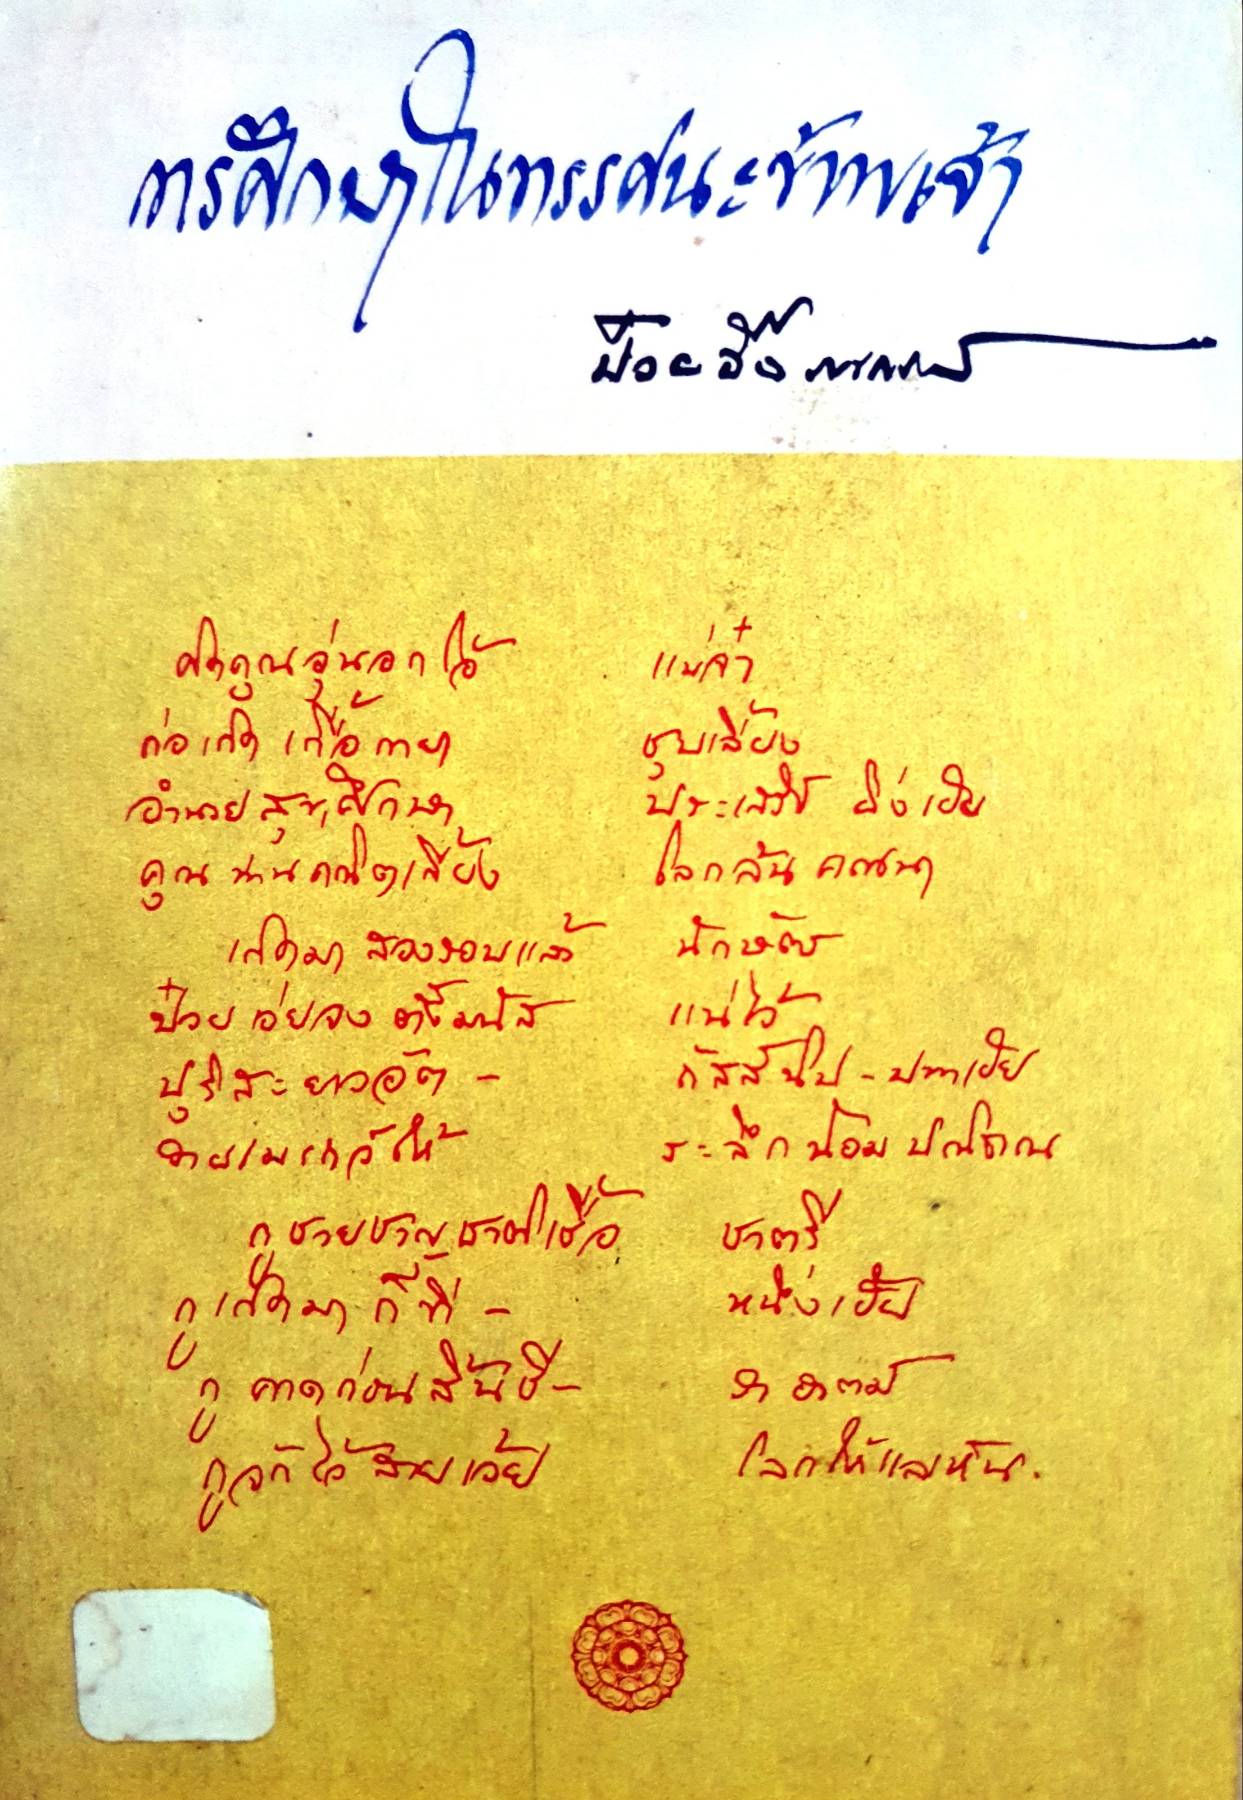 การศึกษาในทรรศนะข้าพเจ้า
ป๋วย อึ๊งภากรณ์
คิดคุณอุ่นอกไว้ แม่จ๋า
ก่อเกิดเกื้อกายา ชุบเลี้ยง
อำนวยสุขศึกษา ประเสริฐ ยิ่งเฮย
คุณ เลี้ยง โลกล้น คณนา
เกิดมาสองรอบแล้ว นักษัตร
ป๋วยเอ่ยจงตั้งมนัส แน่ไว้
ปุริสะยาวอัต– ถัสส์นับ–ปทาเฮย
หมายเมากลัวให้ ระลึกน้อม ปณิธาน
กูชายชาญชาติเชื้อ ชาตรี
กูเกิดมาก็ที – หนึ่งเฮ้ย
กูคาดก่อนสิ้นชี– วาอาตม์
กูจักไว้ลายเว้ย โลกให้แลเห็น.